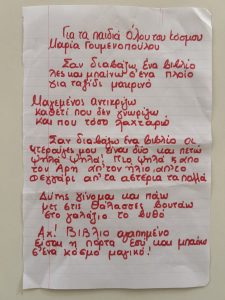 Για τα παιδιά όλου του κόσμου
Μαρία Γουμενοπούλου
Σαν διαβάζω ένα βιβλίο
λες και μπαίνω σ'ένα πλοίο
για ταξίδι μακρινό
Μαγεμένος αντικρίζω
καθετί που δεν γνωρίζω
και που τόσο λαχταρώ
Σαν διαβάζω ένα βιβλίο οι
φτερούγες μου είναι δύο και πετώ
ψηλά ψηλά! Πιο ψηλά κ απο
τον Άρη απ'τον ήλιο απ'το
Φεγγάρι απ'τα αστέρια τα πολλά
Δύτης γίνομαι και πάω
μες στις θάλασσες βουτάω
στο γαλάζιο το βυθό
Αχ! Βιβλίο αγαπημένο
είσαι η πόρτα εσύ και μπαίνω
σ'ένα κόσμο μαγικό!